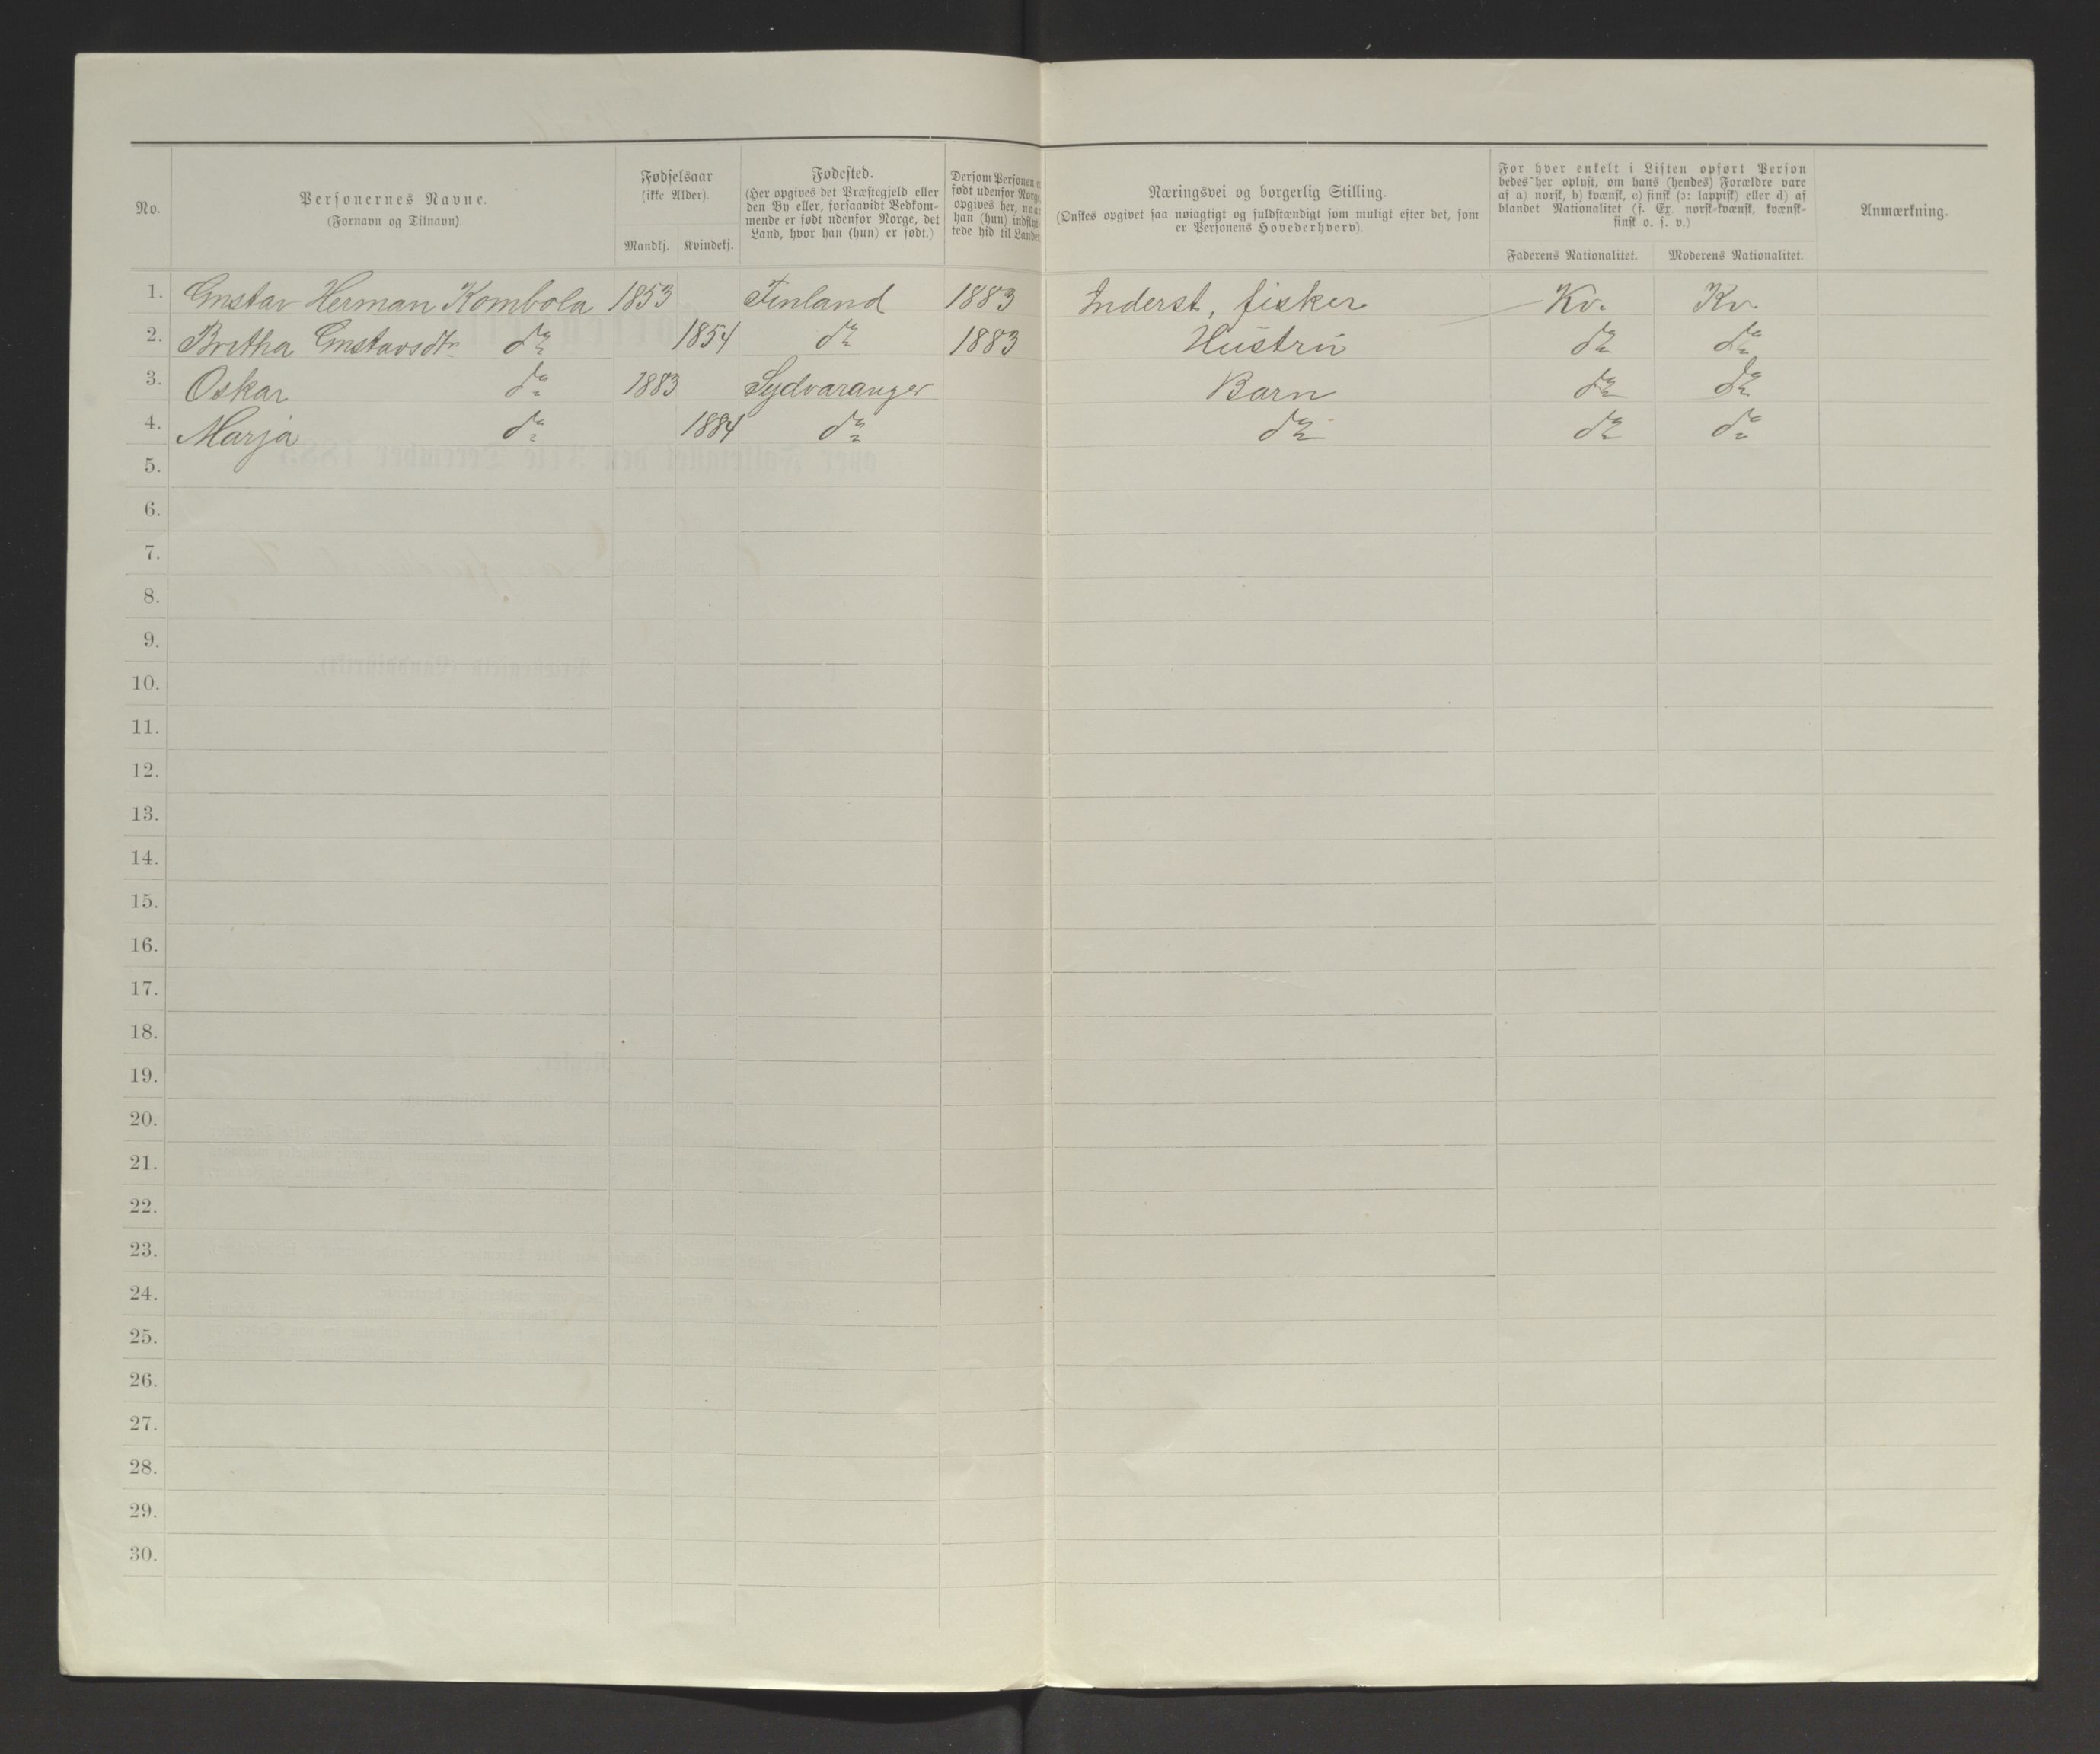 No.
Personernes Navne.
(Fornavn og Tilnavn).
Fødselsaar
(ikke Alder).
Mandkj. Kvindekj.
Fødested.
(Her opgives det Præstegjeld eller
den By eller, forsaavidt Vedkom-
mende er født udenfor Norge, det
Land, hvor han (hun) er født.)
Dersom Personen er
født udenfor Norge,
opgives her, naar
han (hun) indflyt-
tede hid til Landet.
Næringsvei og borgerlig Stilling.
(Ønskes opgivet saa nøiagtigt og fuldstændigt som muligt efter det, som
er Personens Hovederhverv).
For hver enkelt i Listen opført Person
bedes her oplyst, om hans (hendes) Forældre vare
af a) norsk, b) kvænsk, c) finsk (ɔ: lappisk) eller d) af
blandet Nationalitet (f. Ex. norsk-kvænsk, kvænsk-
finsk o. s. v.)
Faderens Nationalitet. Moderens Nationalitet.
Anmærkning.
1. Gustav Herman Kombola 1853 Finland 1883 Inderst, fisker Kv. Kv.
2. Britha Gustavsdtr. do 1854 do 1883 Hustru do do
3. Oskar do 1883 Sydvaranger Barn do do
4. Marja do 1884 do do do do
5.
6.
7.
8.
9.
10.
11.
12.
13.
14.
15.
16.
17.
18.
19.
20.
21.
22.
23.
24.
25.
26.
27.
28.
29.
30.